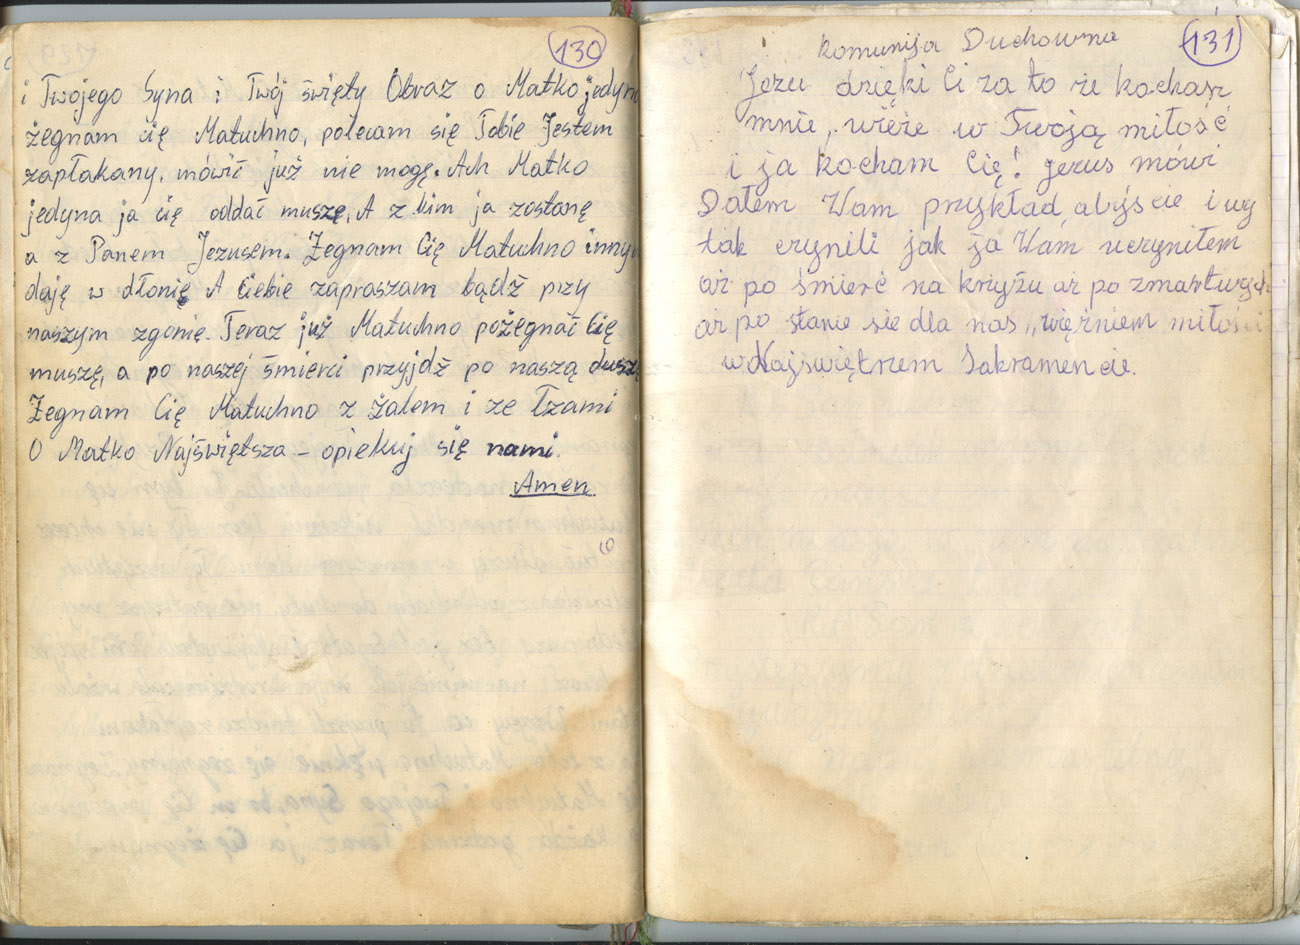 130
i Twojego Syna i Twój święty Obraz o Matko jedyna
żegnam cię Matuchno, polecam się Tobie Jestem
zapłakany, mówić już nie mogę. Ach Matko
jedyna ja cię oddać muszę, A z kim ja zostanę
a z Panem Jezusem. Żegnam Cię Matuchno innym
daję w dłonię A Ciebie zapraszam bądź przy
naszym zgonie. Teraz już Matuchno pożegnać Cię
muszę, a po naszej śmierci przyjdź po naszą duszę
Żegnam Cię Matuchno z żalem i ze łzami
O Matko Najświętsza – opiekuj się nami.
Amen.
131
Komunija Duchowna
Jezu dzięki Ci za to że kochasz
mnie, wieże w Twoją miłość
i ja kocham Cię! Jezus mówi
Dałem Wam przykład, abyście i wy
tak czynili jak ja Wam uczyniłem
aż po śmierć na krzyżu aż po zmartwych
aż po stanie sie dla nas „więźniem miłości
w Najświętrzem Sakramencie.